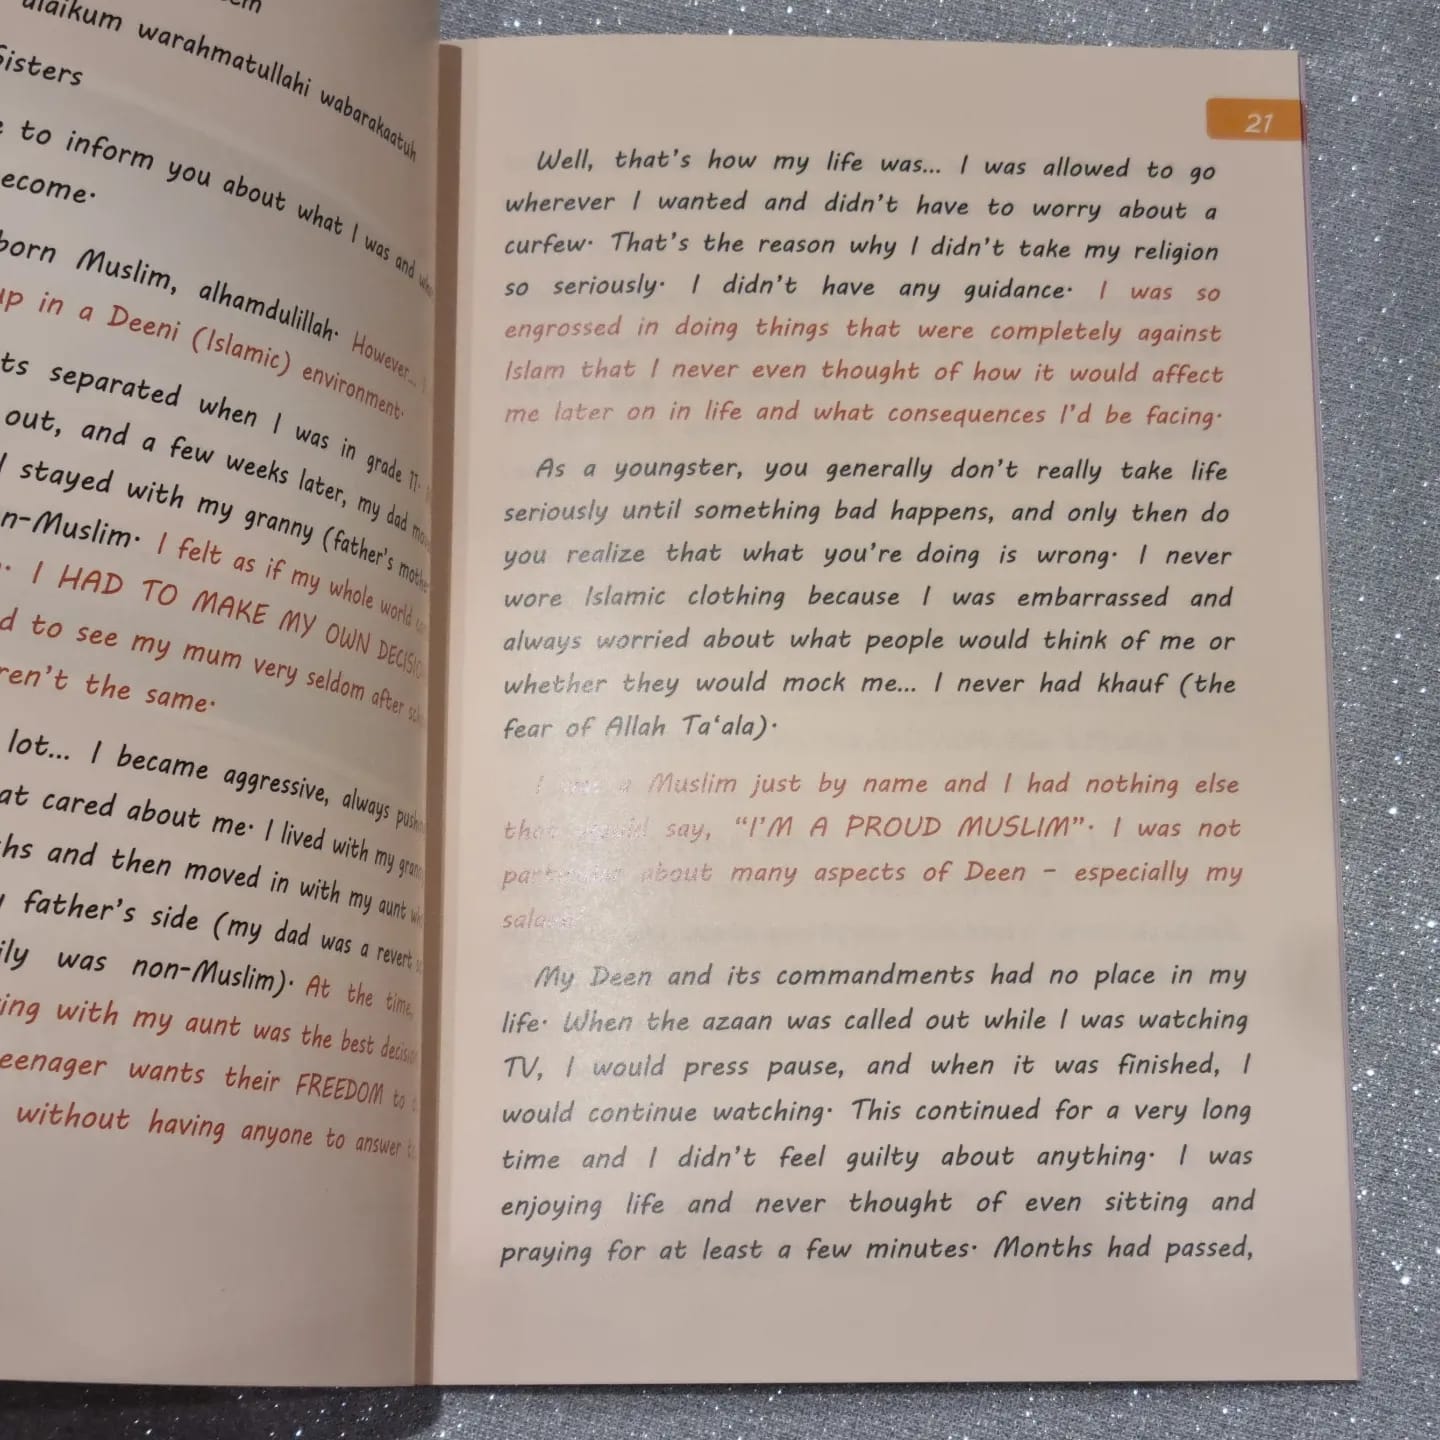 alaikum warahmatullahi wabarakaatuh
Sisters
to inform you about what I was and
ecome.
born Muslim, alhamdulillah. However...
up in a Deeni (Islamic) environment.
ts separated when I was in grade 11.
out, and a few weeks later, my dad
I stayed with my granny (father's
n-Muslim. I felt as if my whole world
I HAD TO MAKE MY OWN
d to see my mum very seldom after
ren't the same.
lot... I became aggressive, always
at cared about me. I lived with my
ths and then moved in with my aunt
father's side (my dad was a revert
ily was non-Muslim). At the time,
ing with my aunt was the best
eenager wants their FREEDOM to
without having anyone to answer
21
Well, that's how my life was... I was allowed to go
wherever I wanted and didn't have to worry about a
curfew. That's the reason why I didn't take my religion
so seriously. I didn't have any guidance. I was so
engrossed in doing things that were completely against
Islam that I never even thought of how it would affect
me later on in life and what consequences I'd be facing.
As a youngster, you generally don't really take life
seriously until something bad happens, and only then do
you realize that what you're doing is wrong. I never
wore Islamic clothing because I was embarrassed and
always worried about what people would think of me or
whether they would mock me... I never had khauf (the
fear of Allah Ta‘ala).
I a Muslim just by name and I had nothing else
that say, “I'M A PROUD MUSLIM”. I was not
about many aspects of Deen – especially my
My Deen and its commandments had no place in my
life. When the azaan was called out while I was watching
TV, I would press pause, and when it was finished, I
would continue watching. This continued for a very long
time and I didn't feel guilty about anything. I was
enjoying life and never thought of even sitting and
praying for at least a few minutes. Months had passed,